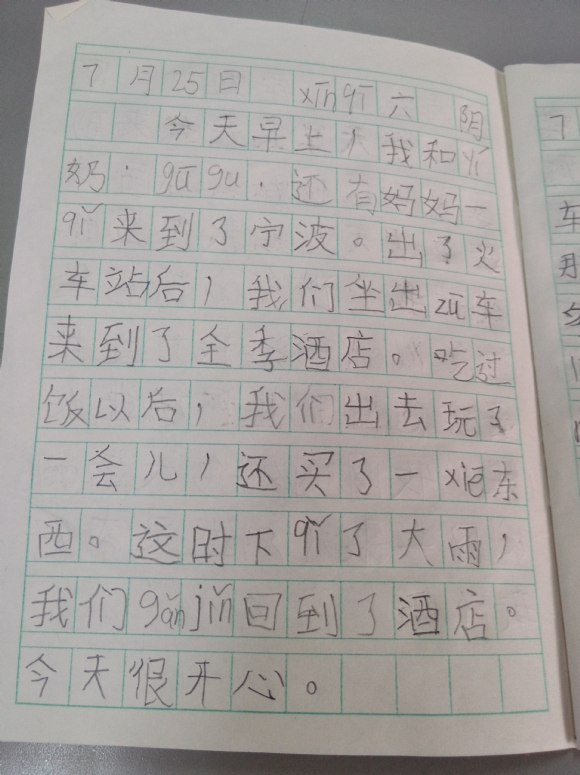 7月25日 xīnqī六 阴
今天早上我和yí
奶·gūgu·还有妈妈一
qǐ来到了宁波。出了火
车站后，我们坐出zū车
来到了全季酒店。吃过
饭以后，我们出去玩了
一会儿，还买了一xiē东
西。这时下qǐ了大雨，
我们gǎnjǐn回到了酒店。
今天很开心。
7
车